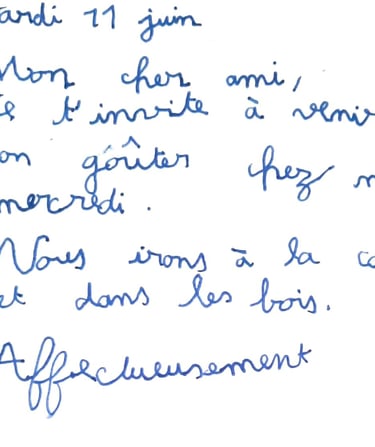 ardi 11 juin
Mon cher ami,
e t'invite à venir
on goûter hez m
mercredi.
Nous irons à la ca
et dans les bois.
Affectueusement